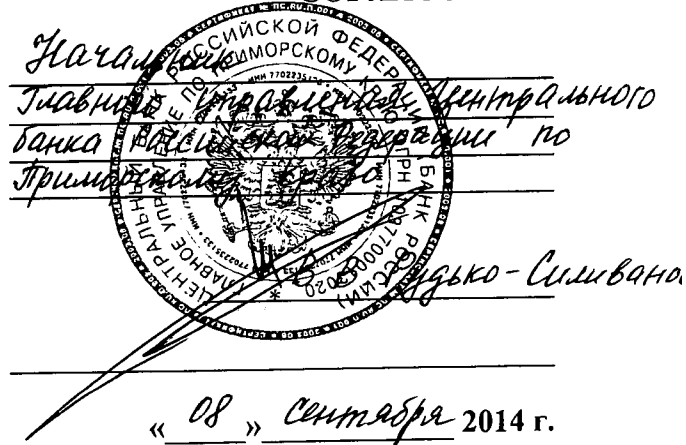 Начальник
Главного управления Центрального
банка Российской Федерации по
Приморскому краю
В. В. Рудько-Силиванов
« 08 » сентября 2014 г.
ЦЕНТРАЛЬНЫЙ БАНК РОССИЙСКОЙ ФЕДЕРАЦИИ (БАНК РОССИИ)
ГЛАВНОЕ УПРАВЛЕНИЕ ПО ПРИМОРСКОМУ КРАЮ
ИНН 7702235133